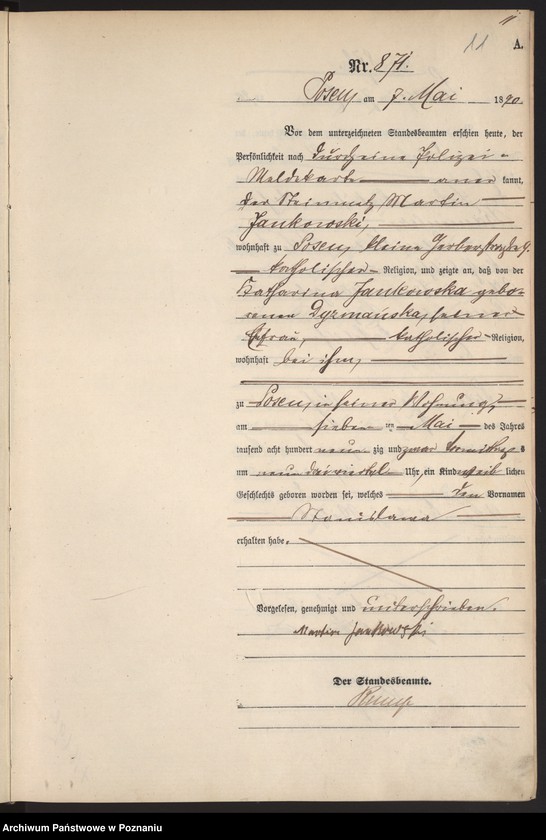 11
A.
Nr. 871.
Posen am 7. Mai 1890.
Vor dem unterzeichneten Standesbeamten erschien heute, der
Persönlichkeit nach durch eine Polizei-
Meldekarte aner kannt,
der Steinmetz Martin
Jankowski,
wohnhaft zu Posen, kleine Gerberstraße
katholischer Religion, und zeigte an, daß von der
Katharina Jankowska gebo-
renen Dyrmańska, seiner
Ehefrau, katholischer Religion,
wohnhaft bei ihm,
zu Posen, in seiner Wohnung,
am sieben ten Mai des Jahres
tausend acht hundert neun zig und zwar Vormittags
um neun dreiviertel Uhr, ein Kind weib lichen
Geschlechts geboren worden sei, welches den Vornamen
Stanislawa
erhalten habe.
Vorgelesen, genehmigt und unterschrieben.
Martin Jankowski
Der Standesbeamte.
Archiwum Państwowe w Poznaniu